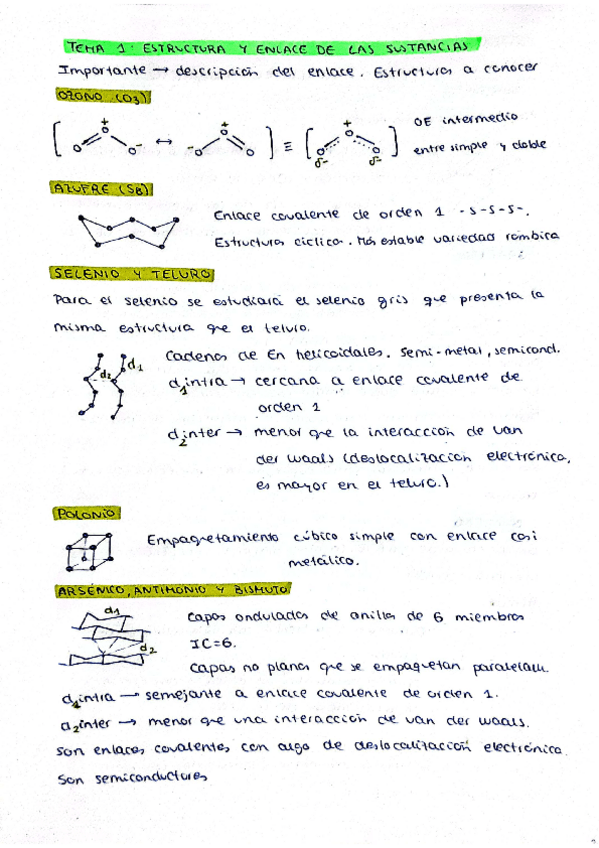 TEMA 1: ESTRUCTURA Y ENLACE DE LAS SUSTANCIAS
Importante → descripción del enlace. Estructuras a conocer
OZONO (O3)
[ + O O O- ↔ + -O O O ] ≡ [ + O O O δ- δ- ]
OE intermedio
entre simple y doble
AZUFRE (S8)
Enlace covalente de orden 1 -S-S-S-.
Estructura cíclica. Más estable variedad rómbica
SELENIO Y TELURO
Para el selenio se estudiará el selenio gris que presenta la
misma estructura que el teluro.
d1
d2
Cadenas de En helicoidales. Semi-metal, semicond.
d1intra → cercana a enlace covalente de
orden 1
d2inter → menor que la interacción de van
der waals (deslocalización electrónica,
es mayor en el teluro.)
POLONIO
Empaquetamiento cúbico simple con enlace casi
metálico.
ARSÉNICO, ANTIMONIO Y BISMUTO
d1
d2
Capas onduladas de anillos de 6 miembros
IC=6.
Capas no planas que se empaquetan paralelam.
d1intra → semejante a enlace covalente de orden 1.
d2inter → menor que una interacción de van der waals.
Son enlaces covalentes con algo de deslocalización electrónica.
Son semiconductores